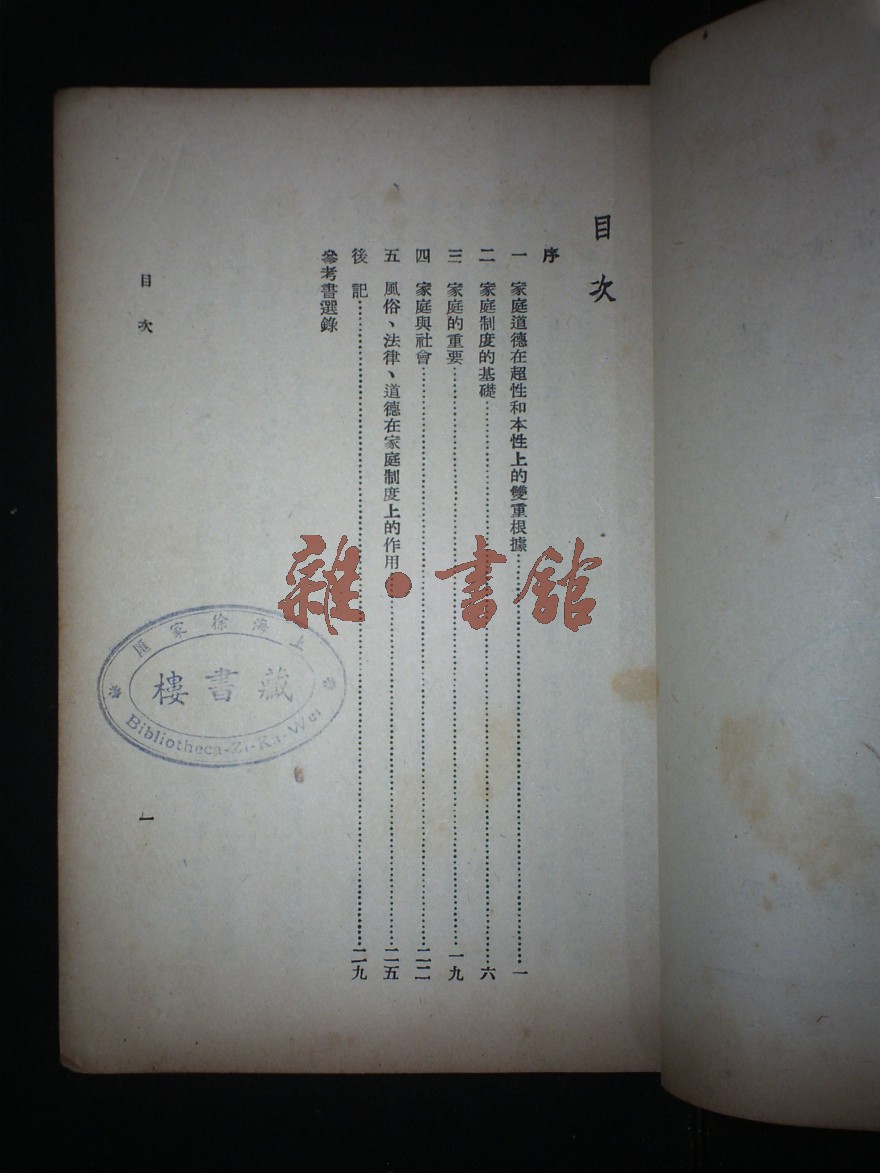 目次
序
一 家庭道德在超性和本性上的雙重根據……一
二 家庭制度的基礎……六
三 家庭的重要……一九
四 家庭與社會……二二
五 風俗、法律、道德在家庭制度上的作用……二五
後記……二九
參考書選錄
目次
一
上海徐家匯
藏書樓
Bibliotheca-Zi-Ka-Wei
雜·書館